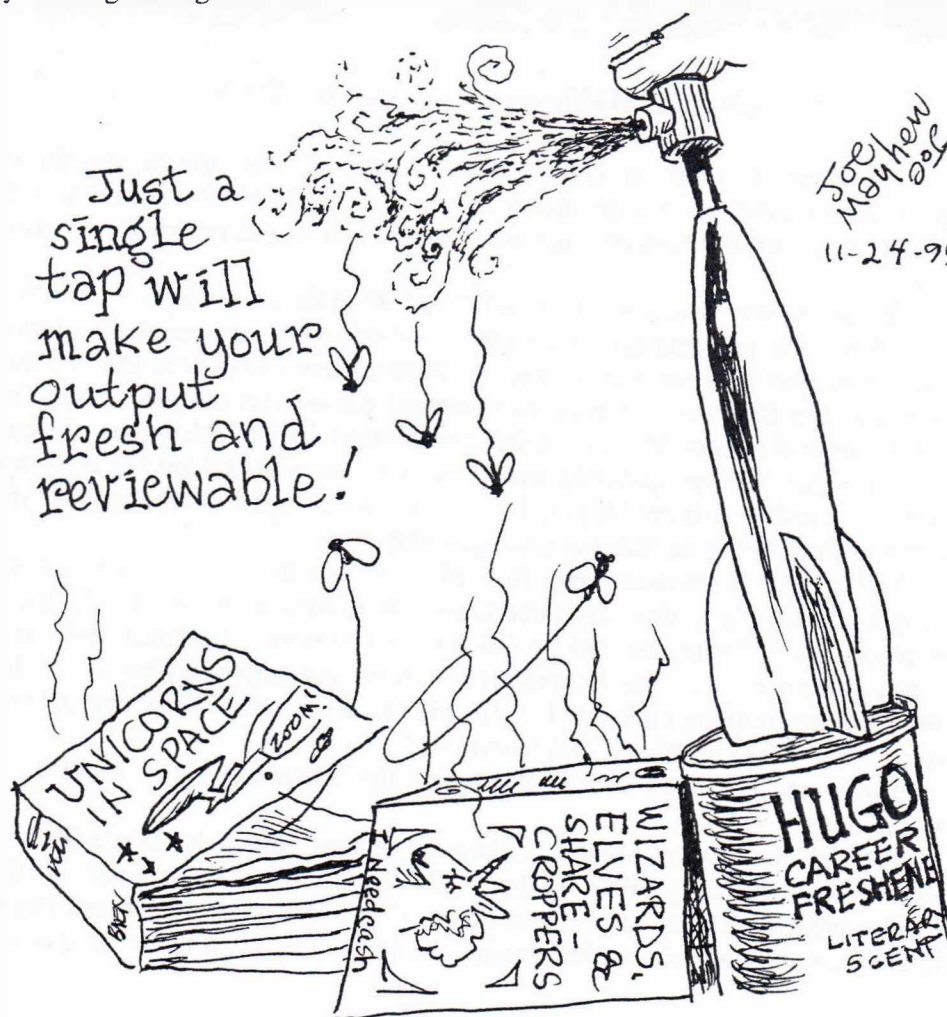 Just a
single
tap will
make your
output
fresh and
reviewable!
Joe
Mayhew
11-24-95
UNICORNS
IN
SPACE
ZOOM!
WIZARDS,
ELVES &
SHARE-
CROPPERS
I. Needcash
HUGO
CAREER
FRESHENE
LITERAR
SCENT